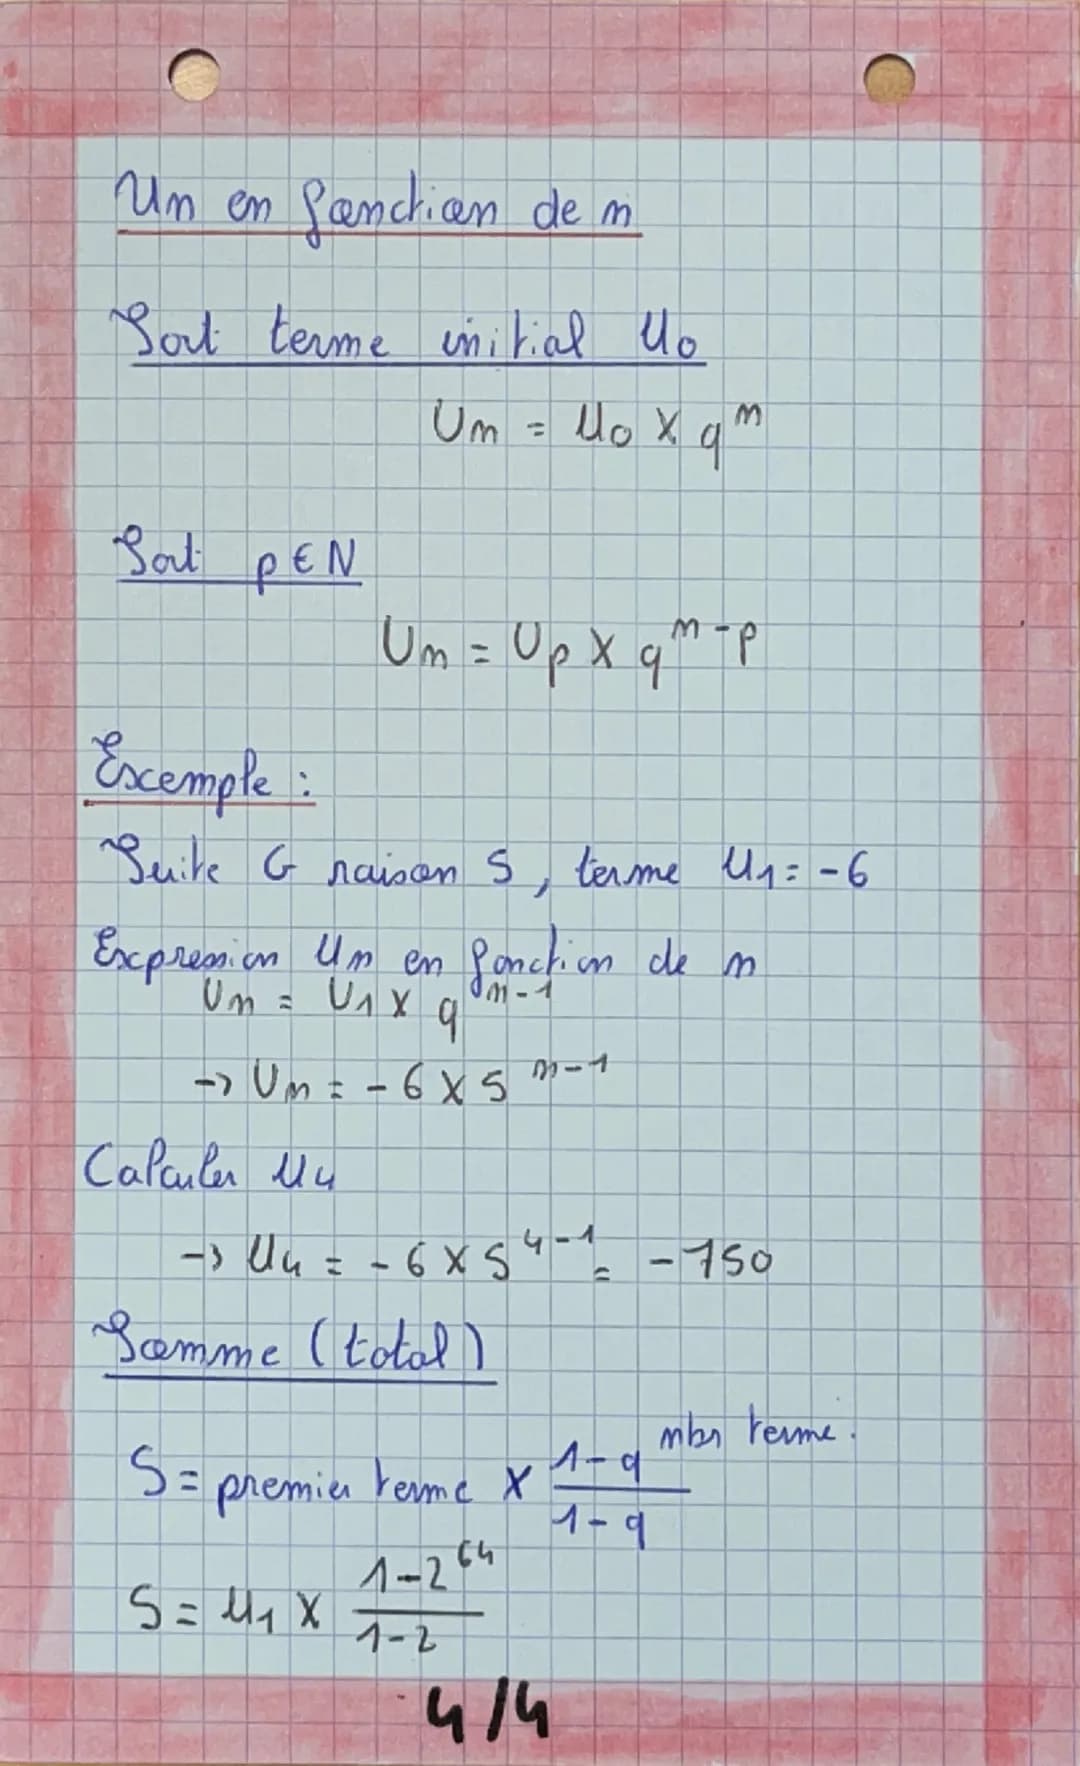 Un en fonction de n
Soit terme initial U0
Un = U0 x q^n
Soit p ∈ N
Un = Up x q^n-p
Exemple :
Suite G raison 5, terme U1 = -6
Expression Un en fonction de n
Un = U1 x q^n-1
-> Un = -6 x 5^n-1
Calculer U4
-> U4 = -6 x 5^4-1 = -750
Somme (total)
S = premier terme x (1-q^nbr terme.)/(1-q)
S = U1 x (1-2^64)/(1-2)
4/4